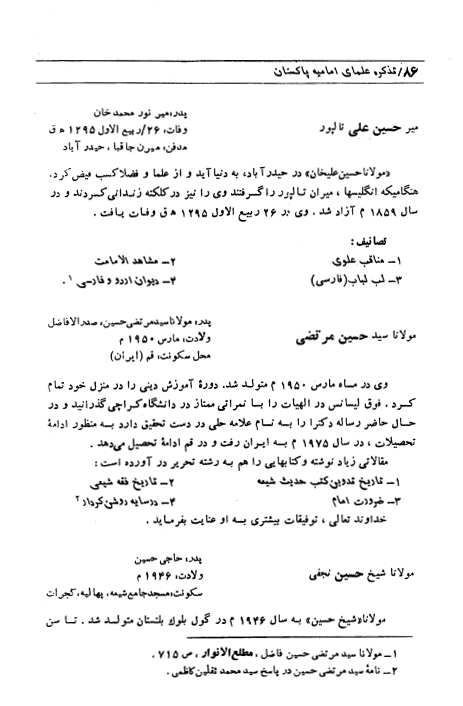 ۸۶/تذکره علمای امامیه پاکستان
پدر: میر نور محمد خان
میر حسین علی تالپور
وفات: ۲۶/ربیع الاول ۱۲۹۵ ه ق
مدفن: میرن جاقبا، حیدر آباد
«مولانا حسین علیخان» در حیدر آباد، به دنیا آید و از علما و فضلا کسب فیض کرد.
هنگامیکه انگلیسها، میران تالپور را گرفتند وی را نیز در کلکته زندانی کردند و در
سال ۱۸۵۹ م آزاد شد. وی در ۲۶ ربیع الاول ۱۲۹۵ ه ق وفات یافت.
تصانیف:
۱- مناقب علوی ۲- مشاهد الامامت
۳- لب لباب (فارسی) ۴- دیوان اردو و فارسی ۱.
پدر: مولانا سید مرتضی حسین، صدر الافاضل
مولانا سید حسین مرتضی
ولادت: مارس ۱۹۵۰ م
محل سکونت: قم (ایران)
وی در ماه مارس ۱۹۵۰ م متولد شد. دورهٔ آموزش دینی را در منزل خود تمام
کرد. فوق لیسانس در الهیات را با نمراتی ممتاز در دانشگاه کراچی گذرانید و در
حال حاضر رساله دکترا را به نام علامه حلی در دست تحقیق دارد به منظور ادامهٔ
تحصیلات، در سال ۱۹۷۵ م به ایران رفت و در قم ادامهٔ تحصیل می‌دهد.
مقالاتی زیاد نوشته و کتابهایی را هم به رشته تحریر در آورده است:
۱- تاریخ تدوین کتب حدیث شیعه ۲- تاریخ فقه شیعی
۳- ضرورت امام ۴- در سایه روشن کردار ۲
خداوند تعالی، توفیقات بیشتری به او عنایت بفرماید.
پدر: حاجی حسین
مولانا شیخ حسین نجفی
ولادت: ۱۹۴۶ م
سکونت: مسجد جامع شیعه، پهالیه، کجرات
مولانا «شیخ حسین» به سال ۱۹۴۶ م در گول بلوک بلتستان متولد شد. تا سن
۱- مولانا سید مرتضی حسین فاضل، مطلع الانوار، ص ۷۱۵.
۲- نامهٔ سید مرتضی حسین در پاسخ سید محمد ثقلین کاظمی.